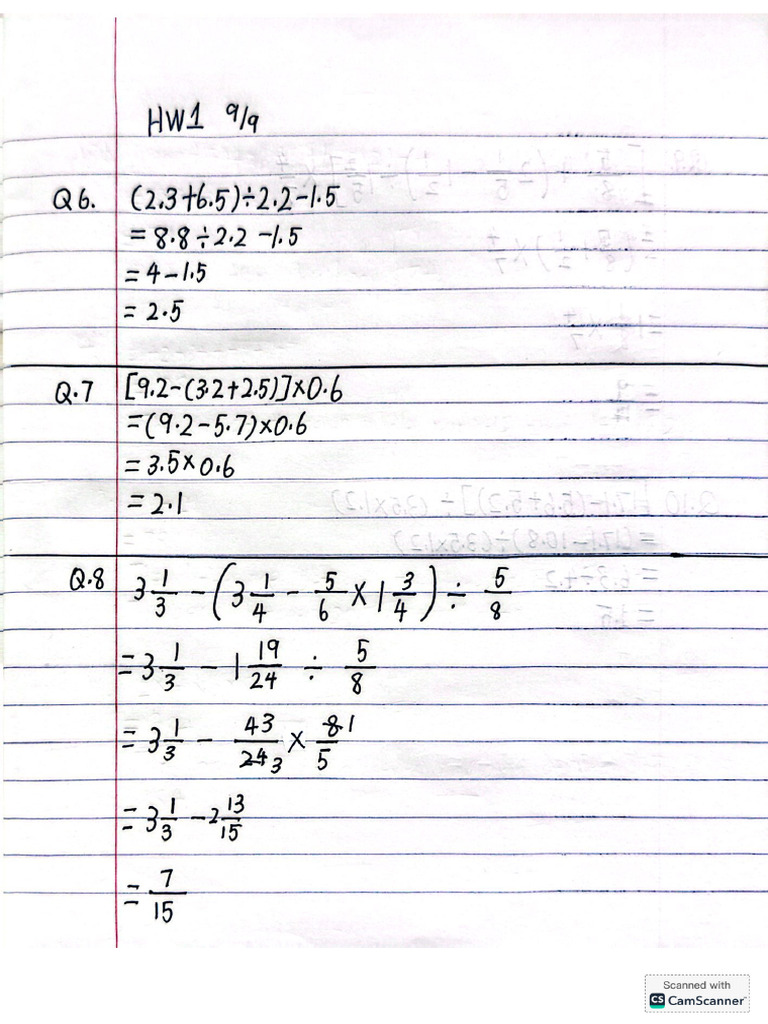 HW1 9/9
Q6. (2.3+6.5)÷2.2-1.5
=8.8÷2.2-1.5
=4-1.5
=2.5
Q.7 [9.2-(3.2+2.5)]×0.6
=(9.2-5.7)×0.6
=3.5×0.6
=2.1
Q.8 3 1/3 - (3 1/4 - 5/6 × 1 3/4) ÷ 5/8
=3 1/3 - 1 19/24 ÷ 5/8
=3 1/3 - 43/24 3 × 8 1/5
=3 1/3 - 2 13/15
=7/15
Scanned with
CS CamScanner